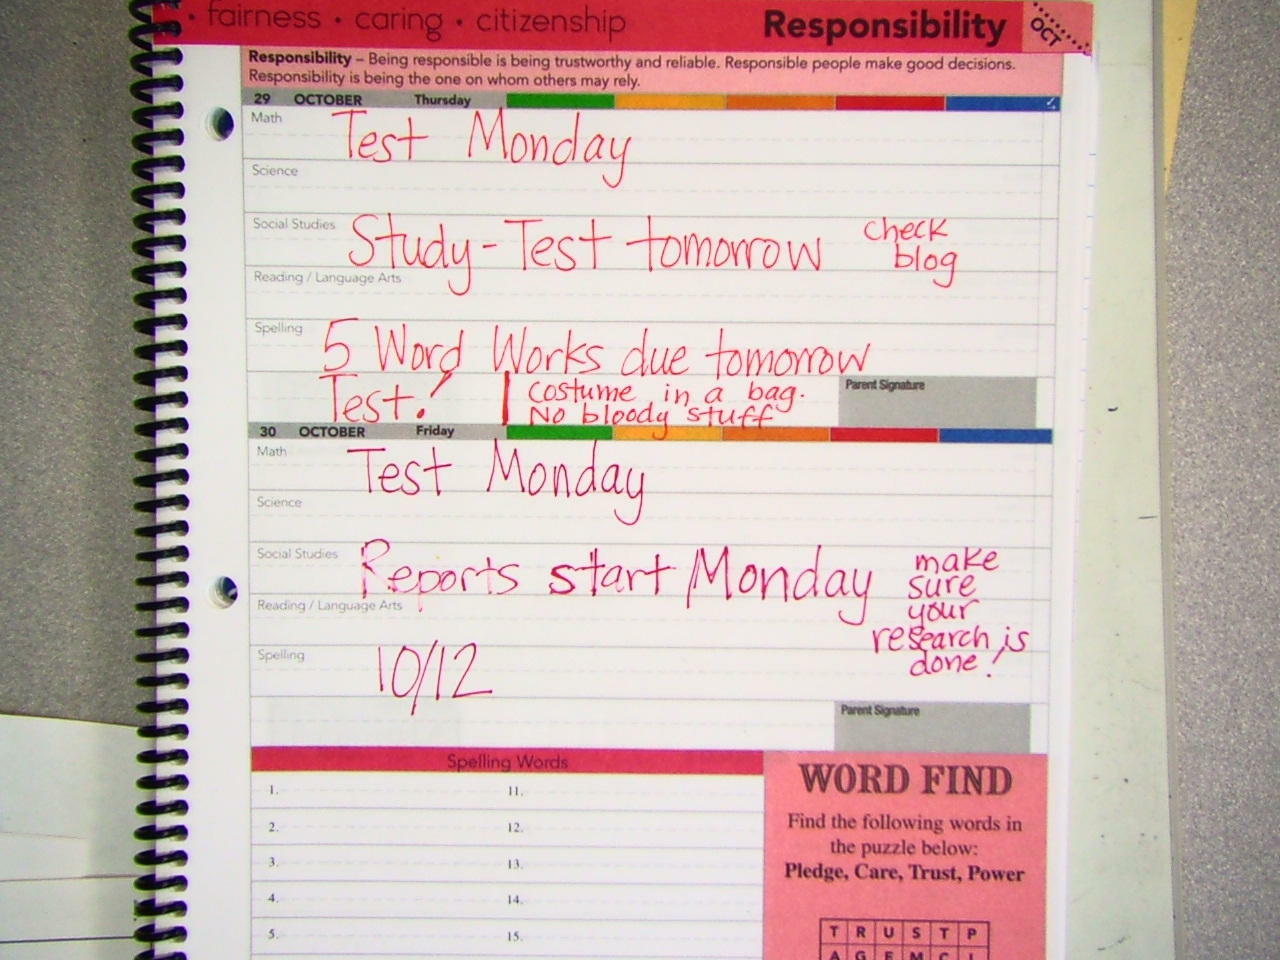 · fairness · caring · citizenship Responsibility OCT
Responsibility – Being responsible is being trustworthy and reliable. Responsible people make good decisions.
Responsibility is being the one on whom others may rely.
29 OCTOBER Thursday
Math Test Monday
Science
Social Studies Study-Test tomorrow check
blog
Reading / Language Arts
Spelling 5 Word Works due tomorrow
Test! costume in a bag.
No bloody stuff
Parent Signature
30 OCTOBER Friday
Math Test Monday
Science
Social Studies Reports start Monday make
sure
your
research is
done!
Reading / Language Arts
Spelling 10/12
Parent Signature
Spelling Words
1. 11.
2. 12.
3. 13.
4. 14.
5. 15.
WORD FIND
Find the following words in
the puzzle below:
Pledge, Care, Trust, Power
T R U S T P
A G E M C L